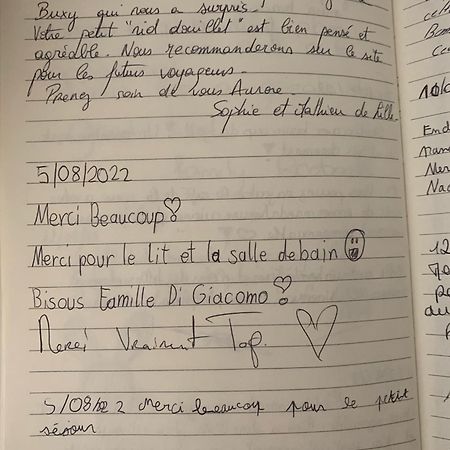 Buxy qui nous a surpris !
Votre petit "nid douillet" est bien pensé et
agréable. Nous recommanderons sur le site
pour les futurs voyageurs.
Prenez soin de vous Aurore.
Sophie et Mathieu de Lille
5/08/2022
Merci Beaucoup!
Merci pour le lit et la salle de bain
Bisous Famille Di Giacomo!
Merci Vraiment Top.
5/08/22 Merci beaucoup pour le petit
séjour